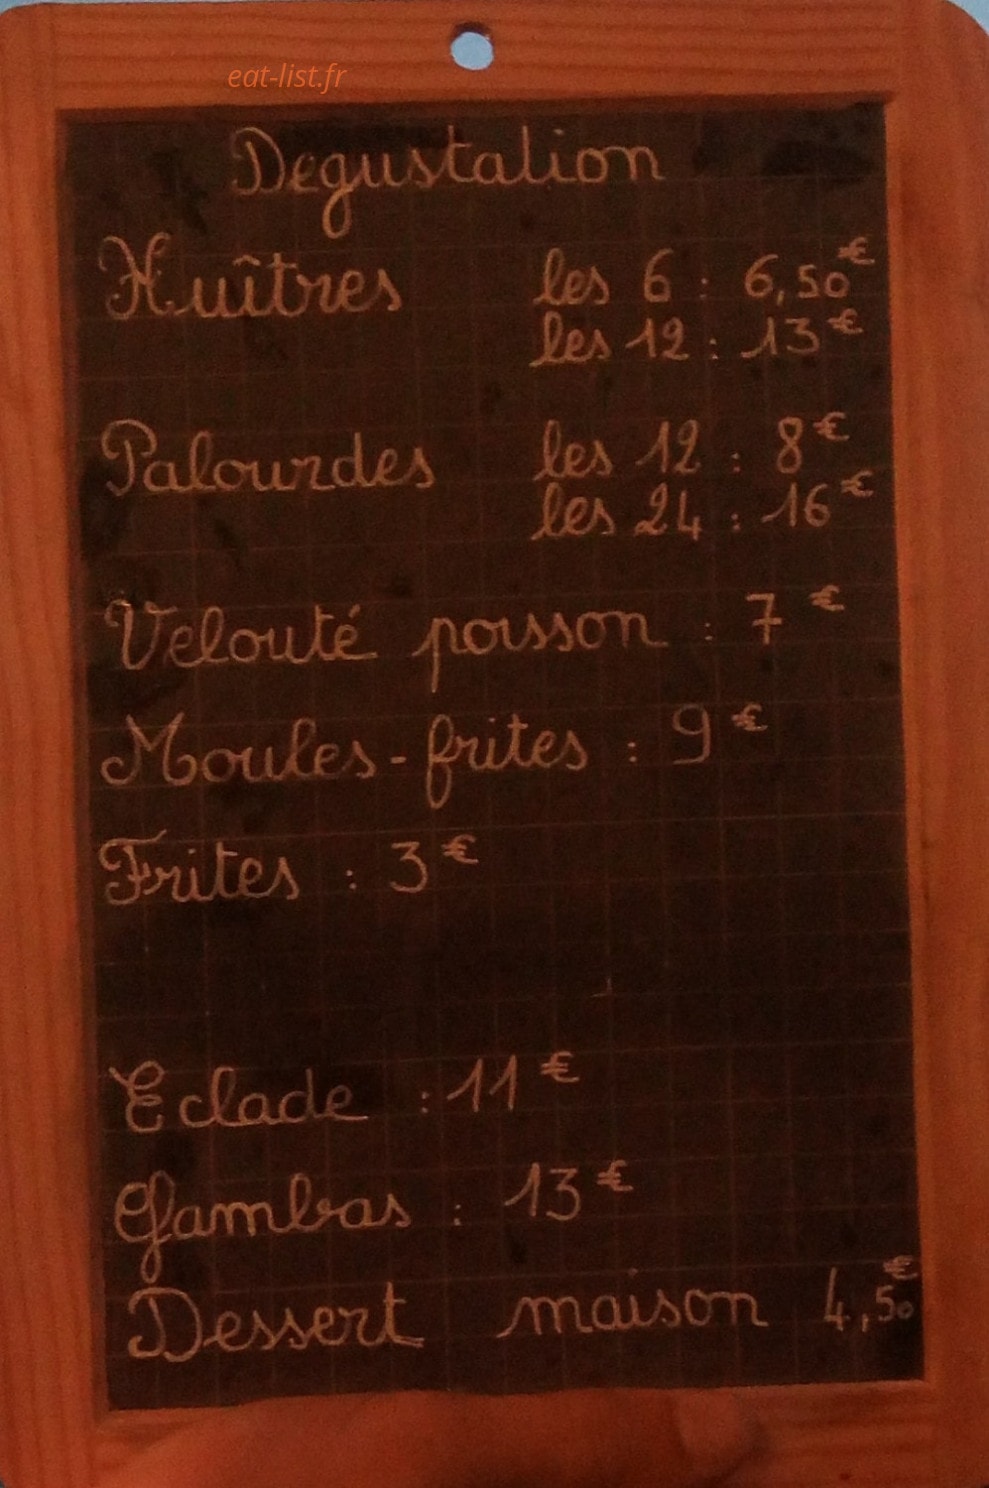 eat-list.fr
Degustation
Huîtres les 6 : 6,50€
les 12 : 13€
Palourdes les 12 : 8€
les 24 : 16€
Velouté poisson : 7€
Moules-frites : 9€
Frites : 3€
Eclade : 11€
Gambas : 13€
Dessert maison 4,50€